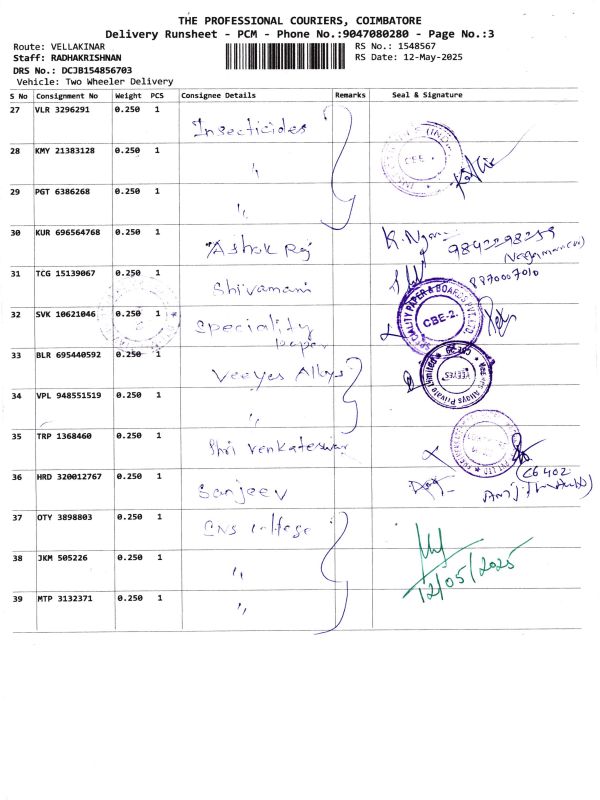 THE PROFESSIONAL COURIERS, COIMBATORE
Delivery Runsheet - PCM - Phone No.:9047080280 - Page No.:3
Route: VELLAKINAR
Staff: RADHAKRISHNAN
DRS No.: DCJB154856703
Vehicle: Two Wheeler Delivery
RS No.: 1548567
RS Date: 12-May-2025
S No Consignment No Weight PCS Consignee Details Remarks Seal & Signature
27 VLR 3296291 0.250 1 Insecticides
28 KMY 21383128 0.250 1 "
29 PGT 6386268 0.250 1 "
30 KUR 696564768 0.250 1 Ashok Raj
9842298259
31 TCG 15139067 0.250 1 Shivamani
8870007010
32 SVK 10621046 0.250 1 Speciality
paper
SPECIALITY PAPER & BOARDS PVT. LTD.
CBE-2.
33 BLR 695440592 0.250 1 Veeyes Alloys
VEEYES
34 VPL 948551519 0.250 1 "
35 TRP 1368460 0.250 1 Shri Venkateswar
36 HRD 320012767 0.250 1 Sanjeev
37 OTY 3898803 0.250 1
38 JKM 505226 0.250 1 "
12/05/2025
39 MTP 3132371 0.250 1 "